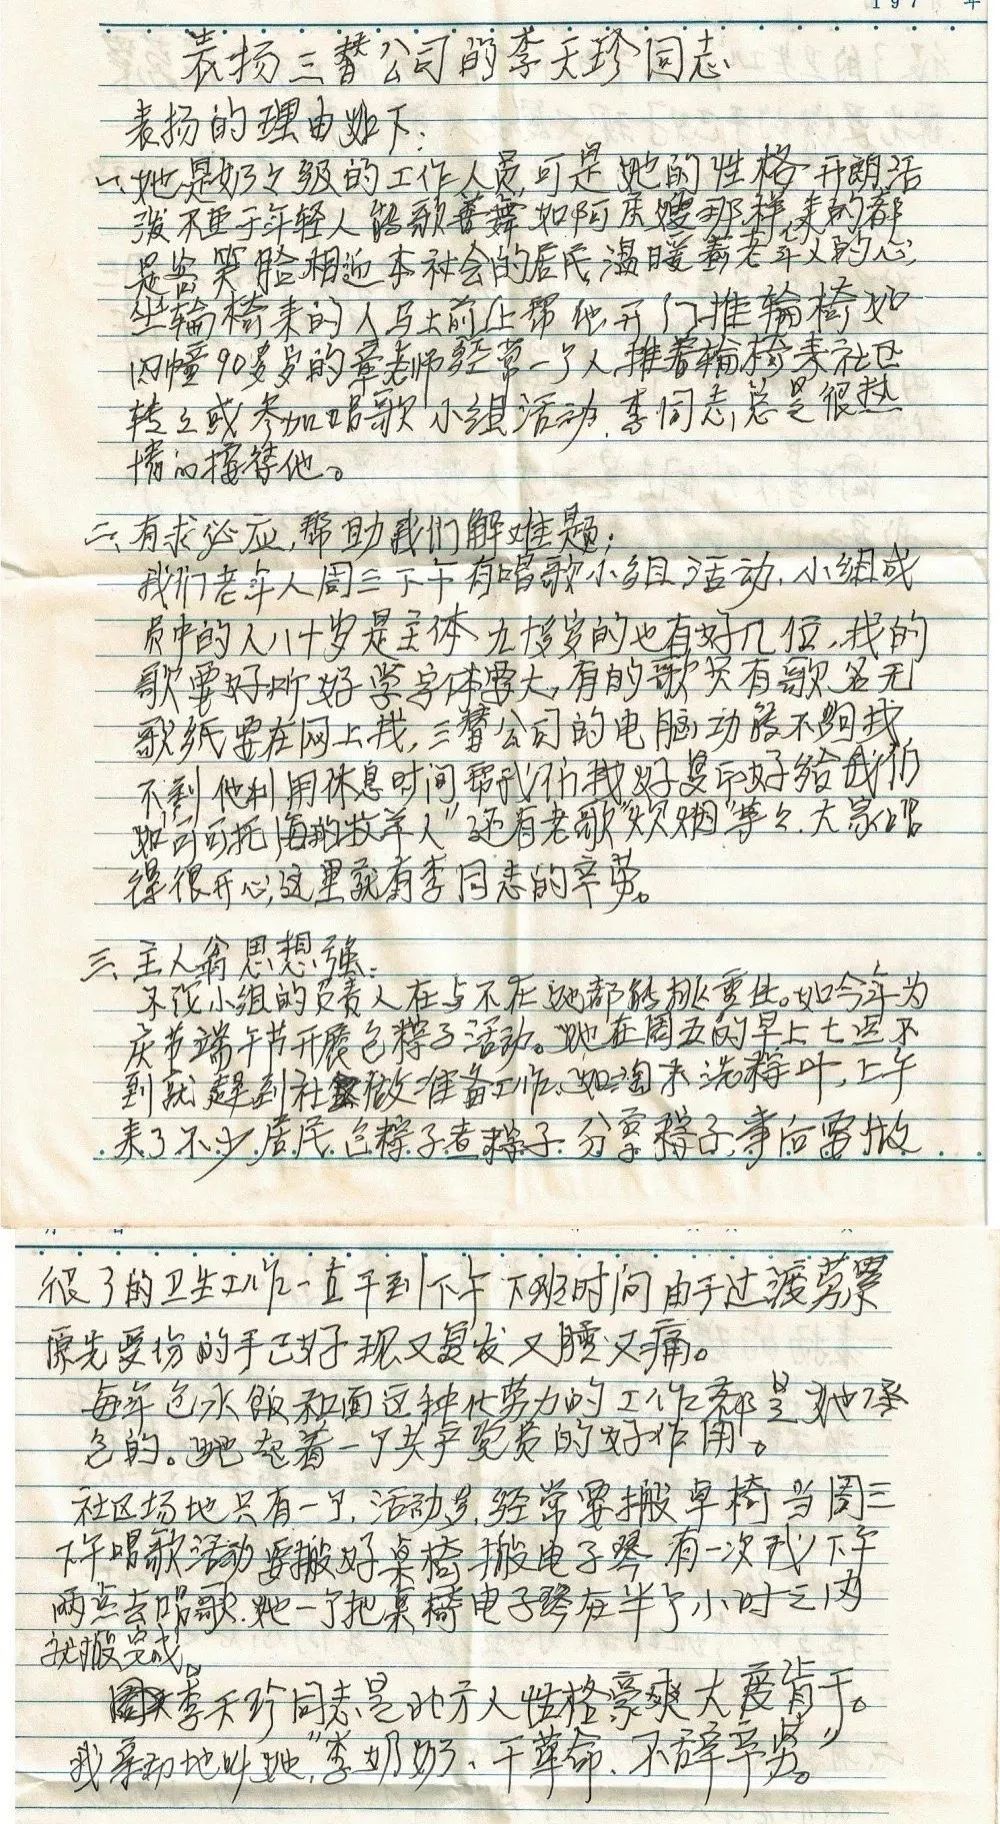 197 年
表扬三替公司的李天珍同志
表扬的理由如下:
一、她是奶々级的工作人员,可是她的性格开朗活
泼不亚于年轻人能歌善舞如阿庆嫂那样,来的都
是客笑脸相迎本社会的居民,温暖着老年人的心,
坐轮椅来的人马上前往帮他开门推轮椅如
四幢90多岁的章老师经常一个人推着轮椅来社区
转々或参加唱歌小组活动,李同志总是很热
情的接待他。
二、有求必应,帮助我们解难题;
我们老年人周三下午有唱歌小组活动,小组成
员中的人八十岁是主体九十多岁的也有好几位,找的
歌要好听好学字体要大,有的歌只有歌名无
歌纸要在网上找,三替公司的电脑功能不够找
不到他利用休息时间帮我们找好复印好给我们
如"可可托海的牧羊人"还有老歌"炊烟"等々,大家唱
得很开心,这里就有李同志的辛劳。
三、主人翁思想强:
不论小组的负责人在与不在她都能挑重任。如今年为
庆节端午节开展包粽子活动。她在周五的早上七点不
到就赶到社区做准备工作,如淘米洗粽叶,上午
来了不少居民包粽子煮粽子分享粽子,事后要做
很多的卫生工作一直干到下午下班时间由于过渡劳累
原先受伤的手已好现又复发又肿又痛。
每年包水饺和面这种化劳力的工作都是她承
包的。她起着一个共产党员的好作用。
社区场地只有一个,活动多,经常要搬桌椅当周三
下午唱歌活动要搬好桌椅搬电子琴有一次我下午
两点去唱歌,她一个把桌椅电子琴在半个小时之内
就搬完成。
李天珍同志是北方人性格豪爽大度肯干。
我亲切地叫她,"李奶奶、干革命、不辞辛劳"。